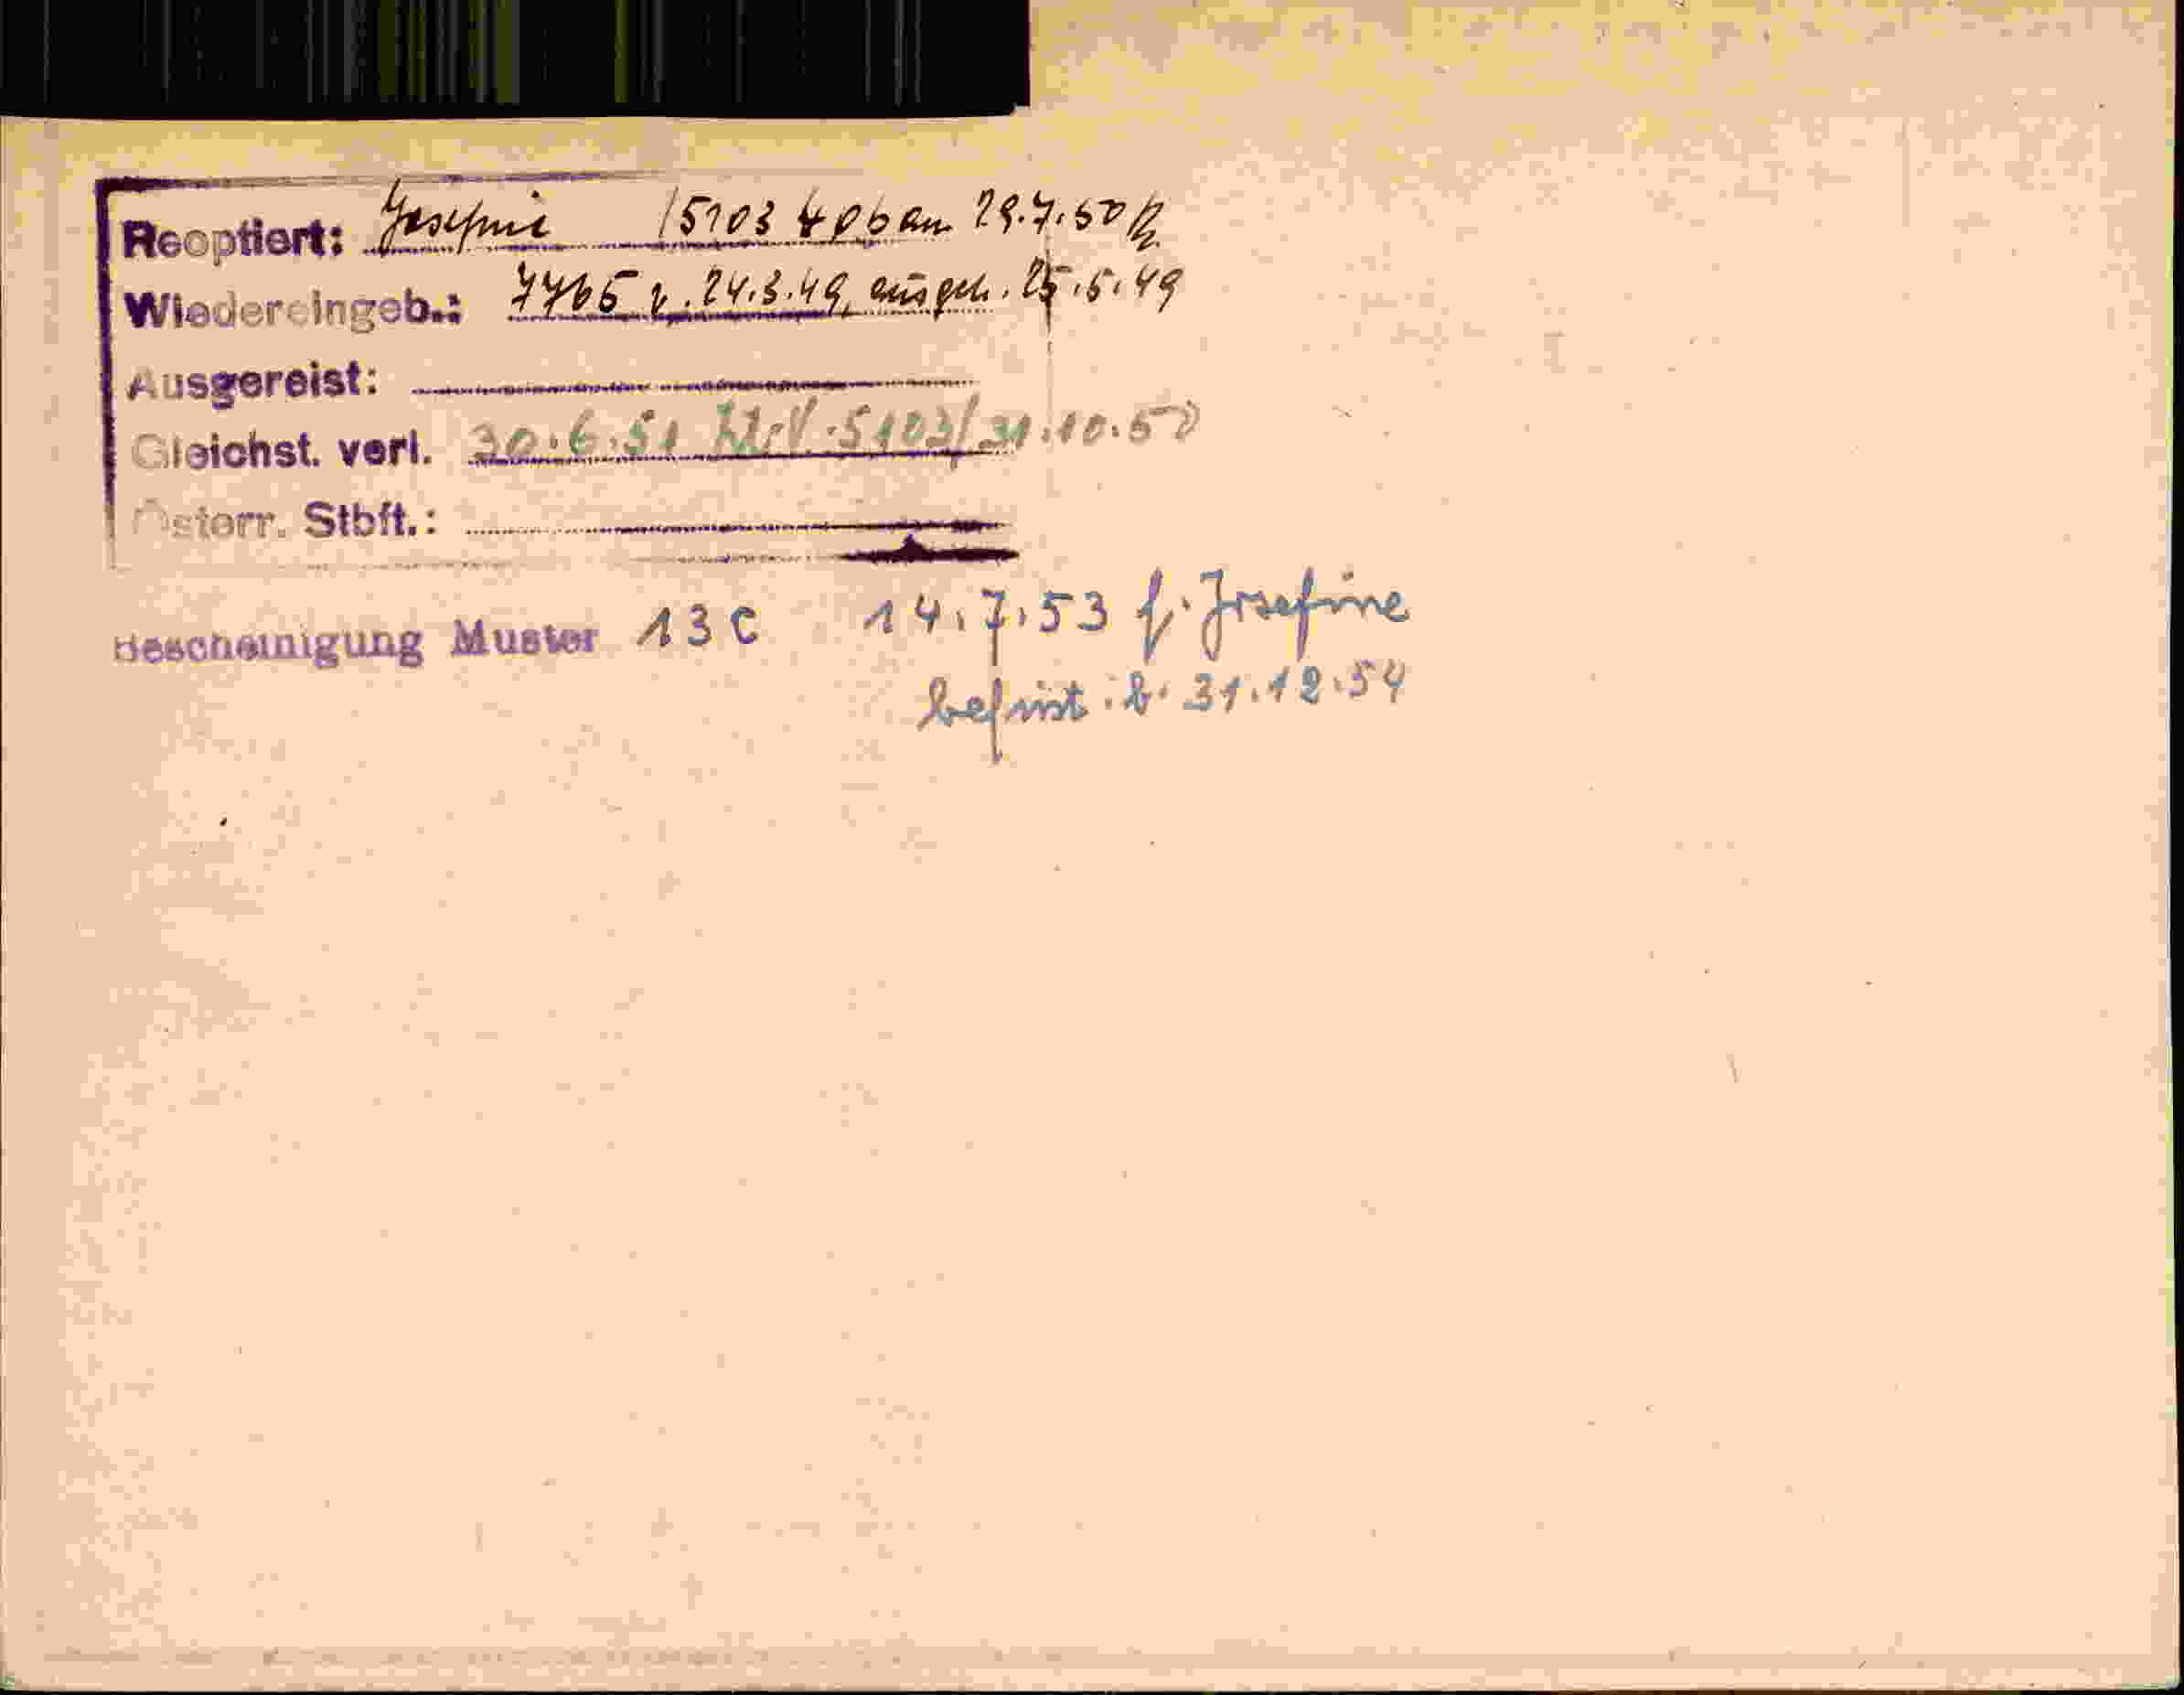 Reoptiert: Josefine 15103 29.7.50
Wiedereingeb.: 7765 v. 24.3.49, ausgeh. 25.5.49
Ausgereist:
Gleichst. verl. 30.6.51 5103/31.10.50
Österr. Stbft.:
Bescheinigung Muster 13c 14.7.53 f. Josefine
befrist. b. 31.12.54